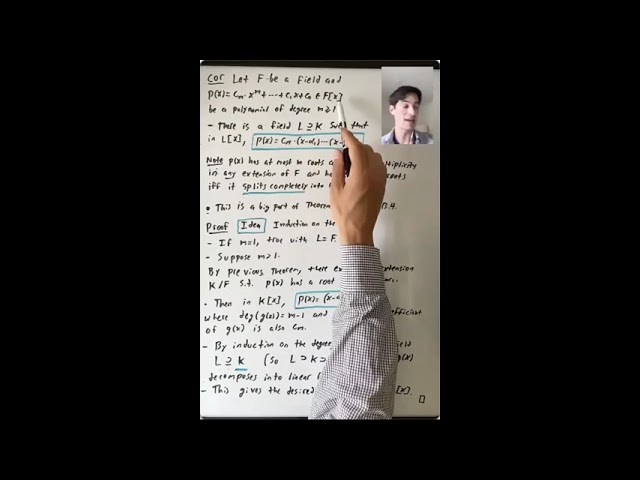 Cor Let F be a field and
p(x) = cₘ·xᵐ + ··· + c₁x + c₀ ∈ F[x]
be a polynomial of degree m ≥ 1
- There is a field L ⊇ K such that
in L[x], p(x) = cₘ·(x-α₁)···(x-
Note p(x) has at most m roots multiplicity
in any extension of F and roots
iff it splits completely into
• This is a big part of Theorem 3.4.
Proof Idea Induction on the
- If m=1, true with L = F.
- Suppose m > 1.
By previous Theorem, there extension
K/F s.t. p(x) has a root
• Then in K[x], p(x) = (x-α
where deg(g(x)) = m-1 and coefficient
of g(x) is also cₘ.
- By induction on the degree, field
L ⊇ K (so L ⊃ K ⊃ g(x)
decomposes into linear
- This gives the desired [x]. □